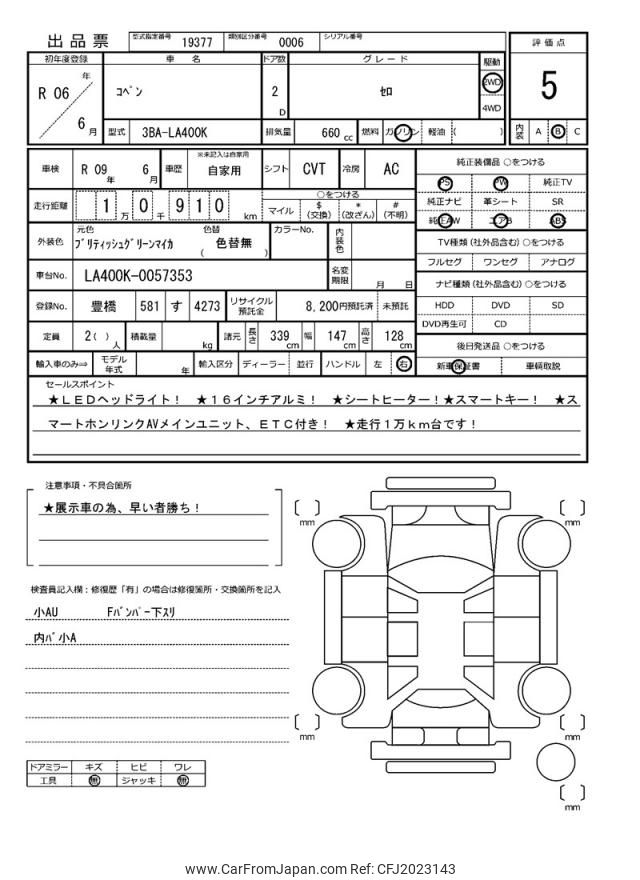 出品票 型式指定番号 19377 類別区分番号 0006 シリアル番号
評価点
5
内装 A B C
初年度登録 車名 ドア数 グレード 駆動
R 06 年 6 月 コペン 2 D セロ 2WD 4WD
型式 3BA-LA400K 排気量 660 cc 燃料 ガソリン 軽油 ( )
車検 R 09 年 6 月 車歴 ※未記入は自家用 自家用 シフト CVT 冷房 AC
走行距離 1 万 0 千 9 1 0 km ○をつける
マイル $ (交換) * (改ざん) # (不明)
外装色 元色 ブリティッシュグリーンマイカ 色替 ( 色替無 ) カラーNo. 内装色
車台No. LA400K-0057353 名変期限 月 日
登録No. 豊橋 581 す 4273 リサイクル預託金 8,200円預託済 未預託
定員 2( ) 人 積載量 kg 諸元 長さ 339 cm 幅 147 cm 高さ 128 cm
輸入車のみ⇒ モデル年式 年 輸入区分 ディーラー 並行 ハンドル 左 右
純正装備品 ○をつける
PS PW 純正TV
純正ナビ 革シート SR
純正AW エアB ABS
TV種類 (社外品含む) ○をつける
フルセグ ワンセグ アナログ
ナビ種類 (社外品含む) ○をつける
HDD DVD SD
DVD再生可 CD
後日発送品 ○をつける
新車保証書 車輌取説
セールスポイント
★LEDヘッドライト! ★16インチアルミ! ★シートヒーター!★スマートキー! ★ス
マートホンリンクAVメインユニット、ETC付き! ★走行1万km台です!
注意事項・不具合箇所
★展示車の為、早い者勝ち!
検査員記入欄:修復歴「有」の場合は修復箇所・交換箇所を記入
小AU Fバンパー下スリ
内パ小A
ドアミラー キズ ヒビ ワレ
工具 無 ジャッキ 無
mm
mm
mm
mm
mm
www.CarFromJapan.com Ref: CFJ2023143